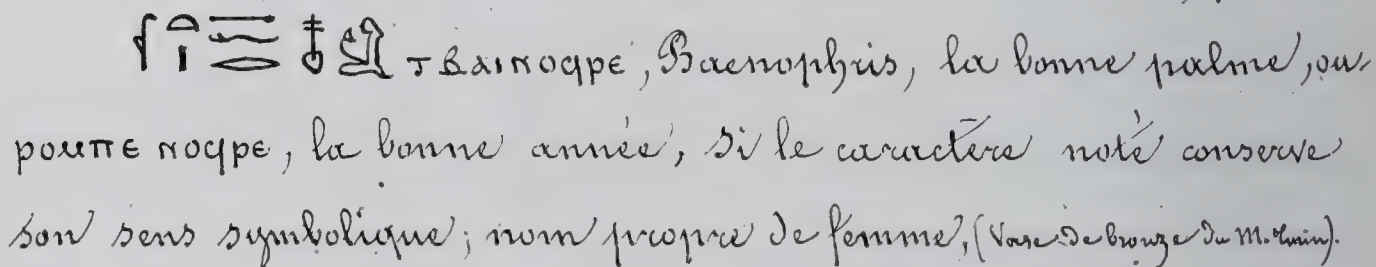 ⲧⲃⲁⲓⲛⲟϥⲣⲉ, Baenophris, la bonne palme, ou
ⲣⲟⲙⲡⲉ ⲛⲟϥⲣⲉ, la bonne année, si le caractère noté conserve
son sens symbolique; nom propre de femme, (Vase de bronze du M. Turin).